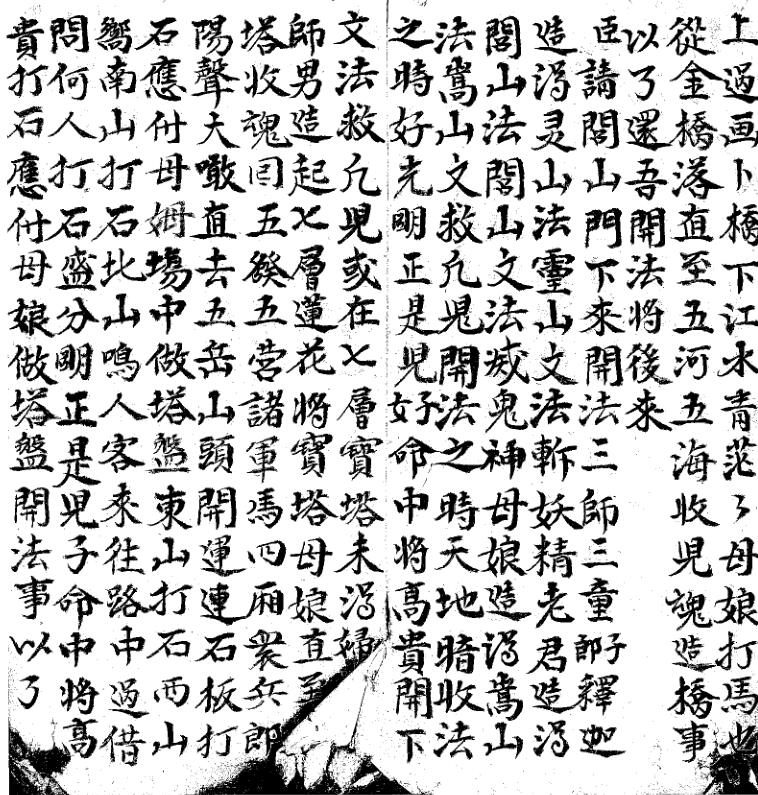 上過画卜橋下江水青茫々母娘打馬也
從金橋落直至五河五海收児魂造橋事
以了還吾開法将後来
臣請閭山門下來開法三師三童郎子釋迦
造淂灵山法靈山文法斬妖精老君造淂
閭山法閭山文法滅鬼神母娘造淂嵩山
法嵩山文救凢児開法之時天地暗收法
之時好光明正是児好命中将高貴開下
文法救凢児或在七層寶塔未淂婦
師男造起七層蓮花将寶塔母娘直至
塔收魂囬五猴五营諸軍馬四厢衆兵郎
陽聲大噉直去五岳山頭開運連石板打
石應付母姆塲中做塔盤東山打石西山
嚮南山打石北山鳴人客來往路中過借
問何人打石盛分明正是児子命中将高
貴打石應付母娘做塔盤開法事以了